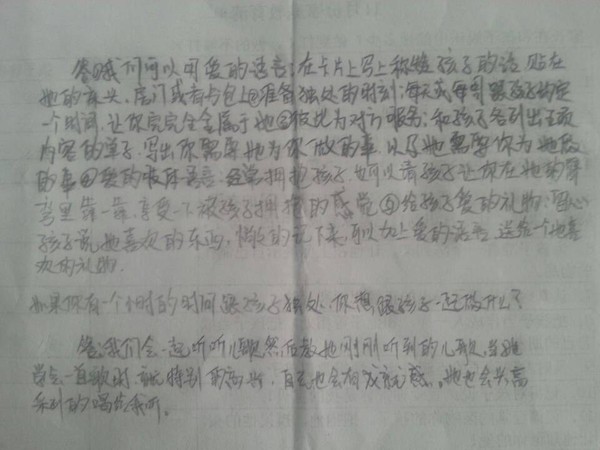 答①我们可以用爱的语言:在卡片上写上称赞孩子的话,贴在
她的床头、房门或者书包上②准备独处的时刻:每天或每周跟孩子约定
一个时间,让你完完全全属于她③彼此为对方服务:和孩子各列出主要
内容的单子,写出你需要她为你做的事,以及她需要你为她做
的事④爱的肢体语言:经常拥抱孩子,也可以请孩子让你在她的臂
弯里靠一靠,享受一下被孩子拥抱的感觉⑤给孩子爱的礼物:留心
孩子说她喜欢的东西,悄悄的记下来,可以加上爱的语言,送给一个她喜
欢的礼物.
如果你有一个小时的时间跟孩子独处,你想跟孩子一起做什么?
答:我们会一起听听儿歌然后教她刚刚听到的儿歌,当她
学会一首歌时,就特别的高兴,自己也会有成就感。她也会兴高
采烈的唱给我听。